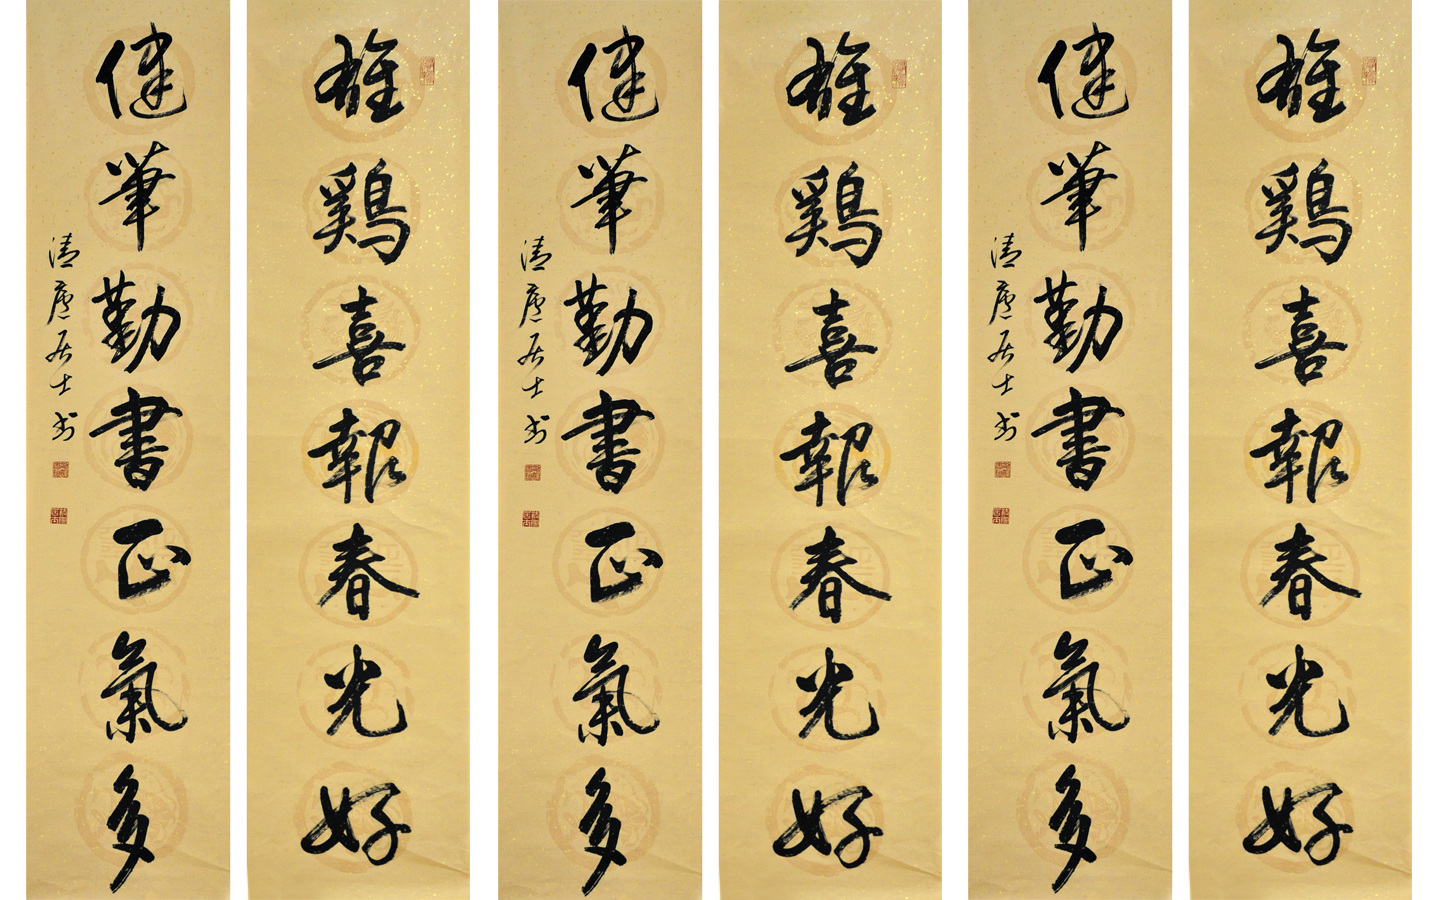 雄鷄喜報春光好
健筆勤書正氣多
清居士书
雄鷄喜報春光好
健筆勤書正氣多
清居士书
雄鷄喜報春光好
健筆勤書正氣多
清居士书